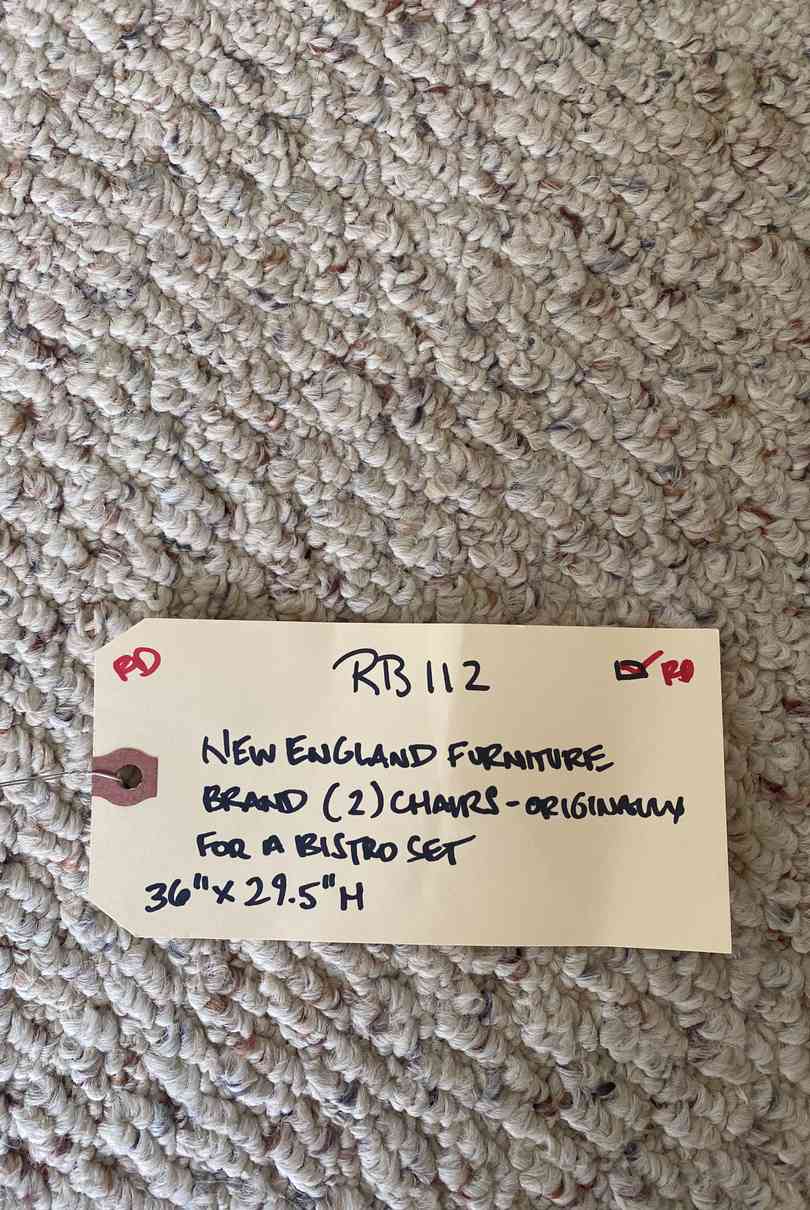 RD RB 112 RD
NEW ENGLAND FURNITURE
BRAND (2) CHAIRS - ORIGINALLY
FOR A BISTRO SET
36" X 29.5" H